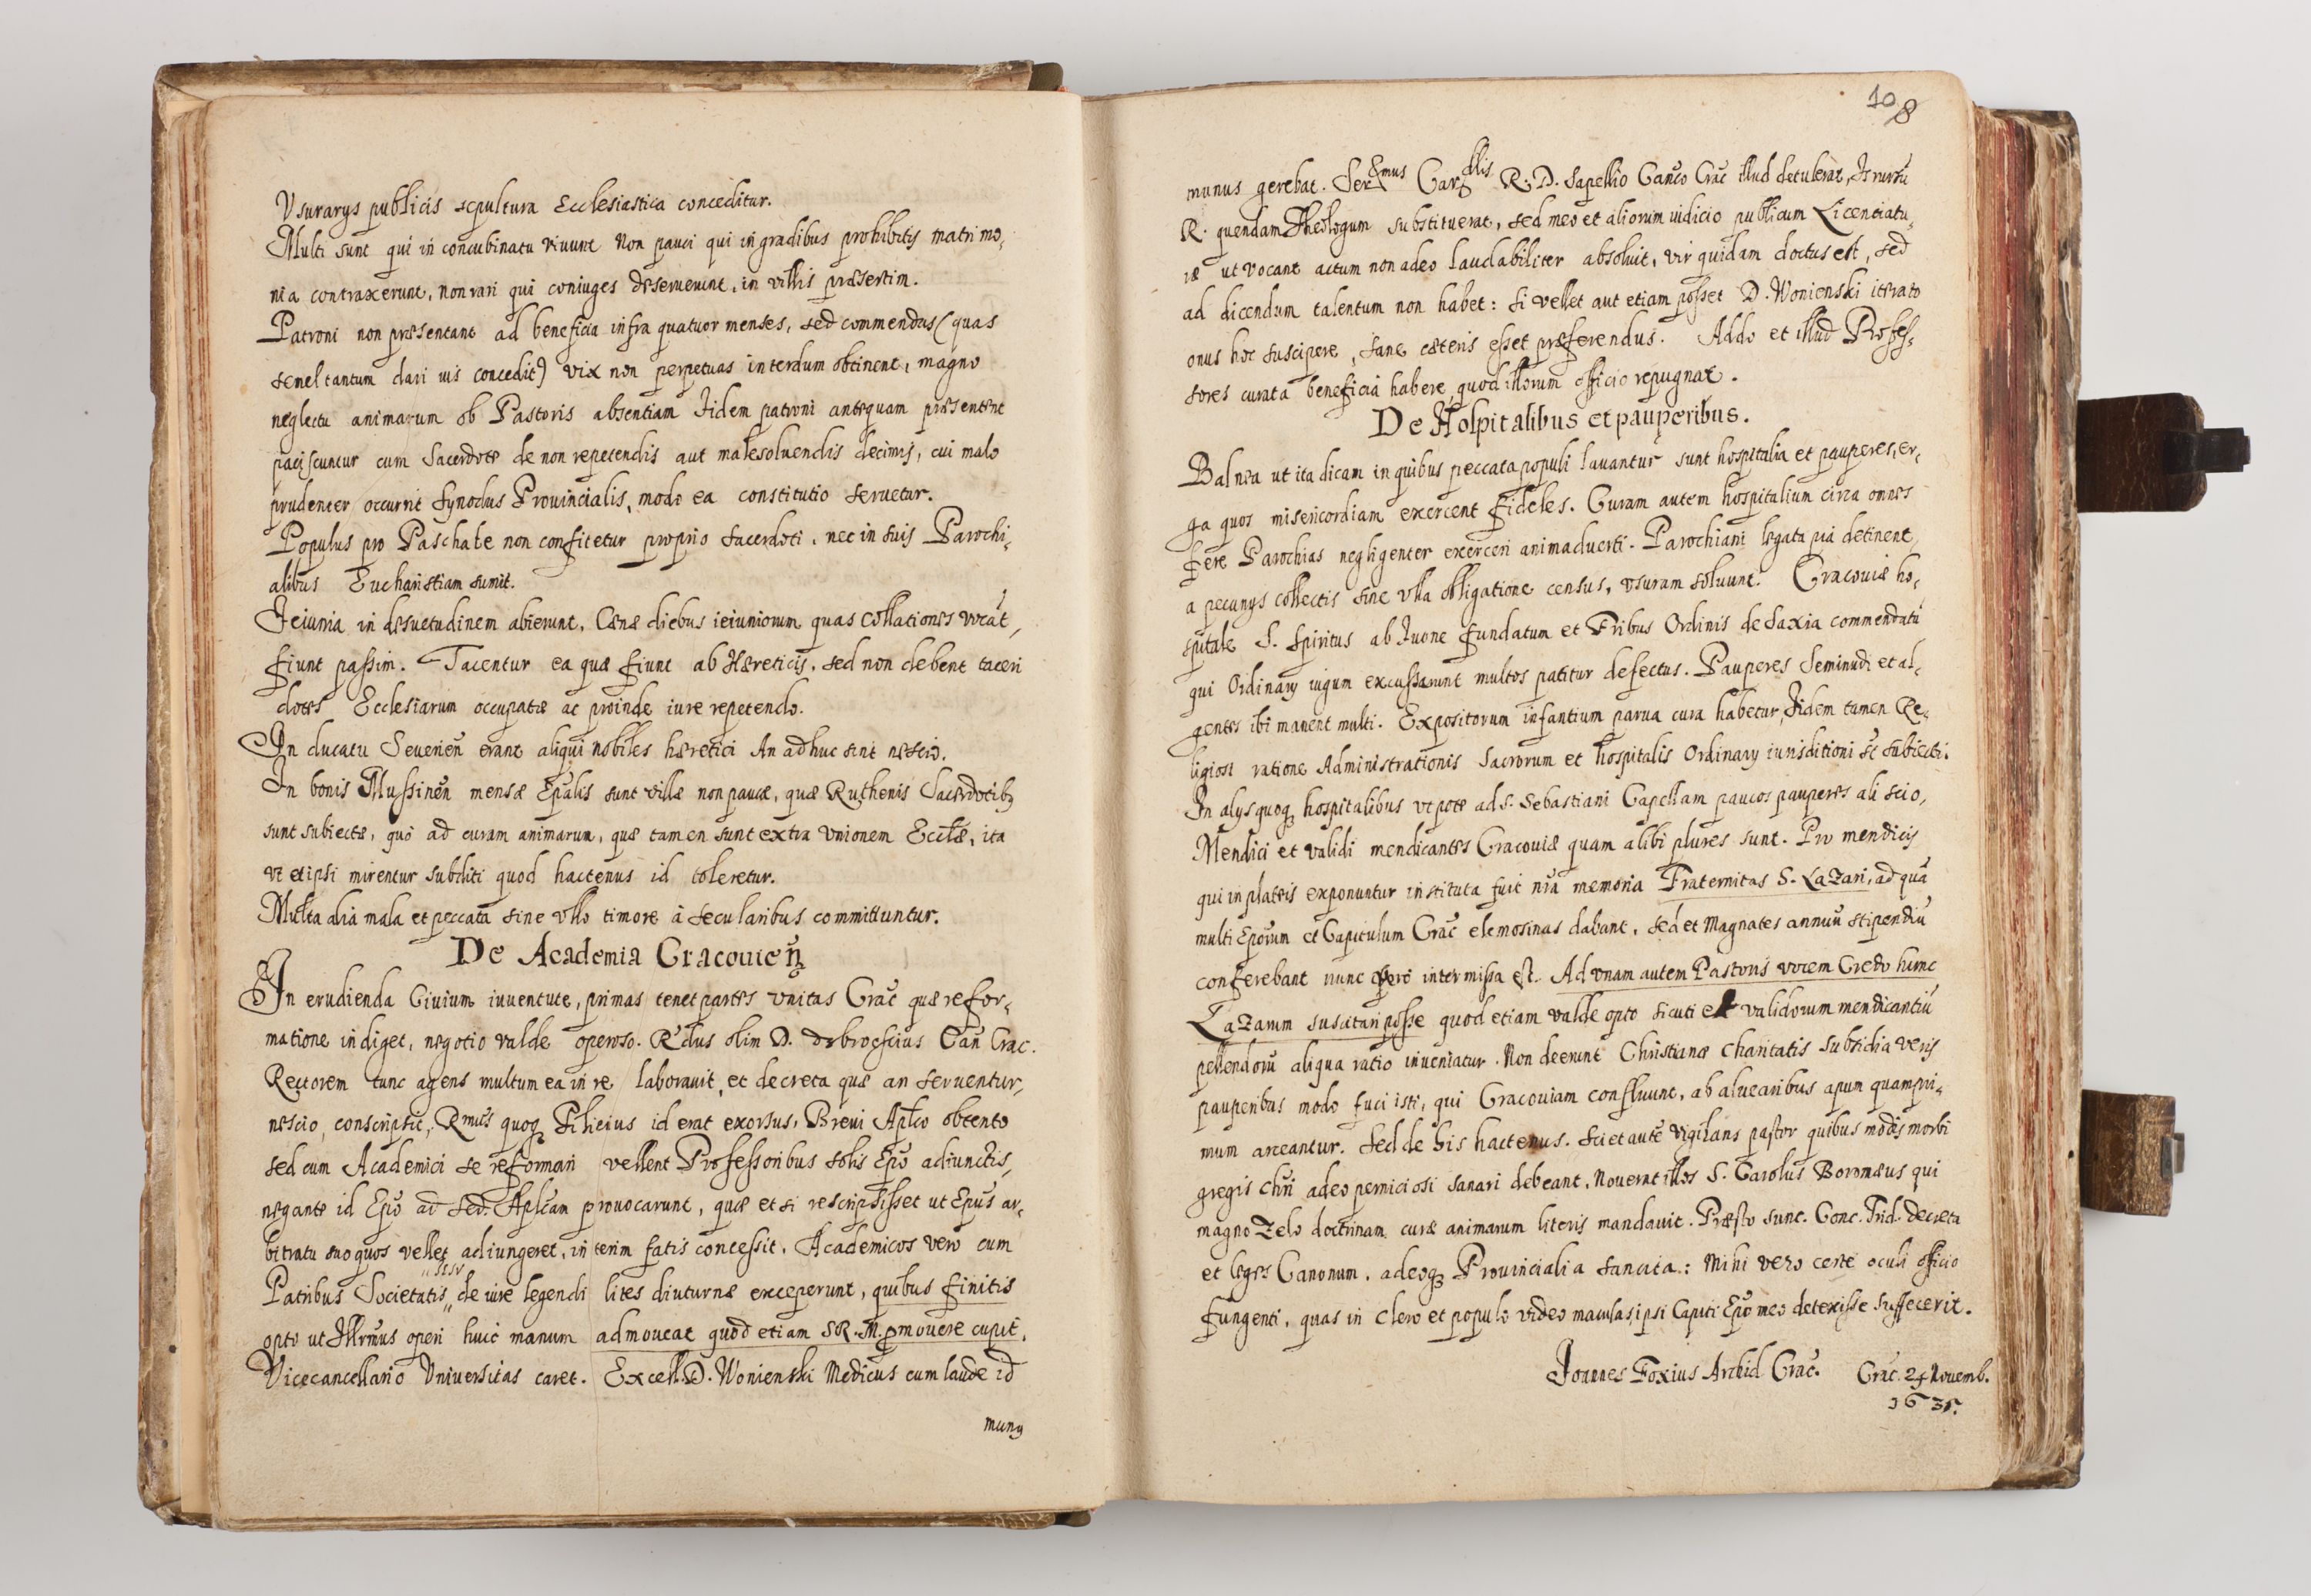 Vsurarys publicis sepultura Ecclesiastica conceditur.
Multi sunt qui in concubinatu viuunt Non pauci qui in gradibus prohibitis matrimo,
nia contraxerunt, non rari qui coniuges deseruerunt, in villis præsertim.
Patroni non præsentant ad beneficia infra quatuor menses, sed commendas (quas
semel tantum dari ius concedit) vix non perpetuas interdum obtinent, magno
neglectu animarum ob Pastoris absentiam Iidem patroni antequam præsentent
paciscuntur cum Sacerdote de non repetendis aut male soluendis decimis, cui malo
prudenter occurrit Synodus Prouincialis, modo ea constitutio seruetur.
Populus pro Paschate non confitetur proprio sacerdoti, nec in suis Parochi,
alibus Eucharistiam sumit.
Ieiunia in desuetudinem abierunt. Cænæ diebus ieiuniorum quas Collationes vocāt,
fiunt passim. Tacentur ea quæ fiunt ab Hæreticis. sed non debent taceri
dotes Ecclesiarum occupatæ ac proinde iure repetendo.
In ducatu Seuerień erant aliqui nobiles hæretici An adhuc sint nescio.
In bonis Mussinēn mensæ Epālis sunt villæ non paucæ, quæ Ruthenis Sacerdotibꝫ
sunt subiectæ, quo ad curam animarum, quæ tamen sunt extra Vnionem Ecclæ, ita
vt et ipsi mirentur subditi quod hactenus id toleretur.
Multa alia mala et peccata sine vllo timore à secularibus committuntur.
De Academia Cracouień
In erudienda Ciuium iuuentute, primas tenet partes Vnitas Crac̄ quæ refor-
matione indiget, negotio valde operoso. R̄dus olim D. dobrocscius Can̄ Crac.
Rectorem tunc agens multum ea in re laborauit, et decreta quæ an seruentur,
nescio, conscripsit, Rm̄us quoqꝫ Filicius id erat exorsus, Breui Ap̄lco obtento
sed cum Academici se reformari vellent Professoribus solis Ep̄o adiunctis,
negante id Ep̄o ad Sed. Ap̄lcam prouocarunt, quæ et si rescripsisset ut Ep̄us ar,
bitratu suo quos vellet adiungeret, interim fatis concessit. Academicos vero cum
Patribus Societatis IESV de iure legendi lites diuturnæ exceperunt, quibus finitis
opto ut Illr̄mus operi huic manum admoueat quod etiam SR. M. pmouere cupit.
Vicecancellario Vniuersitas caret. Excell. D. Wonienski Medicus cum laude id
muny
108
munus gerebat. Ser͞emus Car͞dlis R. D. Sapellio Canco Crac̄ illud detulerat, Is rursū
R. quendam Theologum substituerat, sed meo et aliorum iudicio publicum Licentiatu,
ræ ut vocant actum non adeo laudabiliter absoluit, vir quidam doctus est, sed
ad dicendum talentum non habet: si vellet aut etiam posset D. Wonienski iterato
onus hoc suscipere, sane cæteris esset præferendus. Addo et illud Profes,
sores curata beneficia habere, quod illorum officio repugnat.
De Hospitalibus et pauperibus.
Balnea ut ita dicam in quibus peccata populi lauantur sunt hospitalia et pauperes, er,
ga quos misericordiam exercent fideles. Curam autem hospitalium circa omnes
fere Parochias negligenter exerceri animaduerti. Parochiani legata pia detinent,
a pecunys collectis sine vlla obligatione census, vsuram soluunt. Cracouiæ ho,
spitale S. Spiritus ab Iuone fundatum et Fribus Ordinis de Saxia commendatū
qui Ordinary iugum excussarunt multos patitur defectus. Pauperes Seminudi et al,
gentes ibi manent multi. Expositorum infantium parua cura habetur, Iidem tamen Re,
ligiosi ratione Administrationis Sacrorum et hospitalis Ordinary iurisditioni st̄ subiecti.
In alys quoqꝫ hospitalibus vt pote ad S. Sebastiani Capellam paucos pauperes ali scio,
Mendici et validi mendicantes Cracouiæ quam alibi plures sunt. Pro mendicis
qui in plateis exponuntur instituta fuit nr̄a memoria Fraternitas S. Lazari, ad quā
multi Ep̄orum et Capitulum Crac̄ elemosinas dabant, sed et Magnates annuū stipendiū
conferebant nunc vero intermissa est. Ad vnam autem Pastoris vocem Credo hunc
Lazarum suscitari posse quod etiam valde opto sicuti et validorum mendicantiū
pellendorū aliqua ratio inueniatur. Non deerunt Christianæ Charitatis subsidia veris
pauperibus modo fuci isti, qui Cracouiam confluunt, ab aluearibus apum quampri,
mum arceantur. Sed de his hactenus. Sciet autē Vigilans pastor quibus modis morbi
gregis Chr̄i adeo perniciosi sanari debeant. Nouerat illos S. Carolus Boromæus qui
magno Zelo doctrinam curæ animarum literis mandauit. Præsto sunt. Conc. Trid. decreta
et leges Canonum, adeoqꝫ Prouincialia sancita: Mihi vero certe oculi officio
fungenti, quas in Clero et populo video maculas, ipsi Capiti Ep̄o meo detexisse Suffecerit.
Ioannes Foxius Archid Crac̄. Crac. 24 Nouemb.
1635.